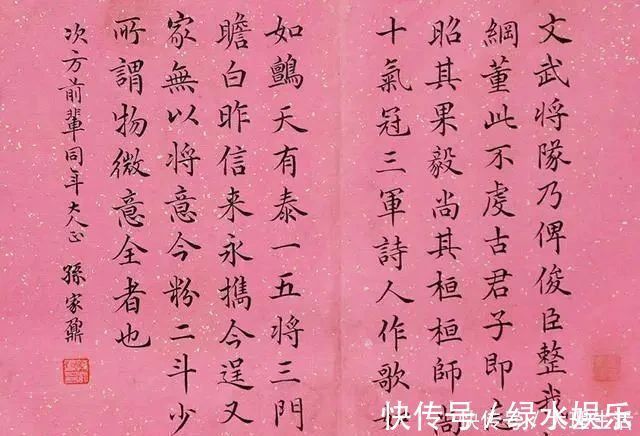 文武将隊乃俾俊臣整我
綱董此不虔古君子即
昭其果毅尚其桓桓師尚
十氣冠三軍詩人作歌
如鸇天有泰一五将三門
瞻白昨信来永攜今逞又
家無以将意今粉二斗少
所謂物微意全者也
次方前輩同年大人正 孫家鼐
快传号/绿水娱乐